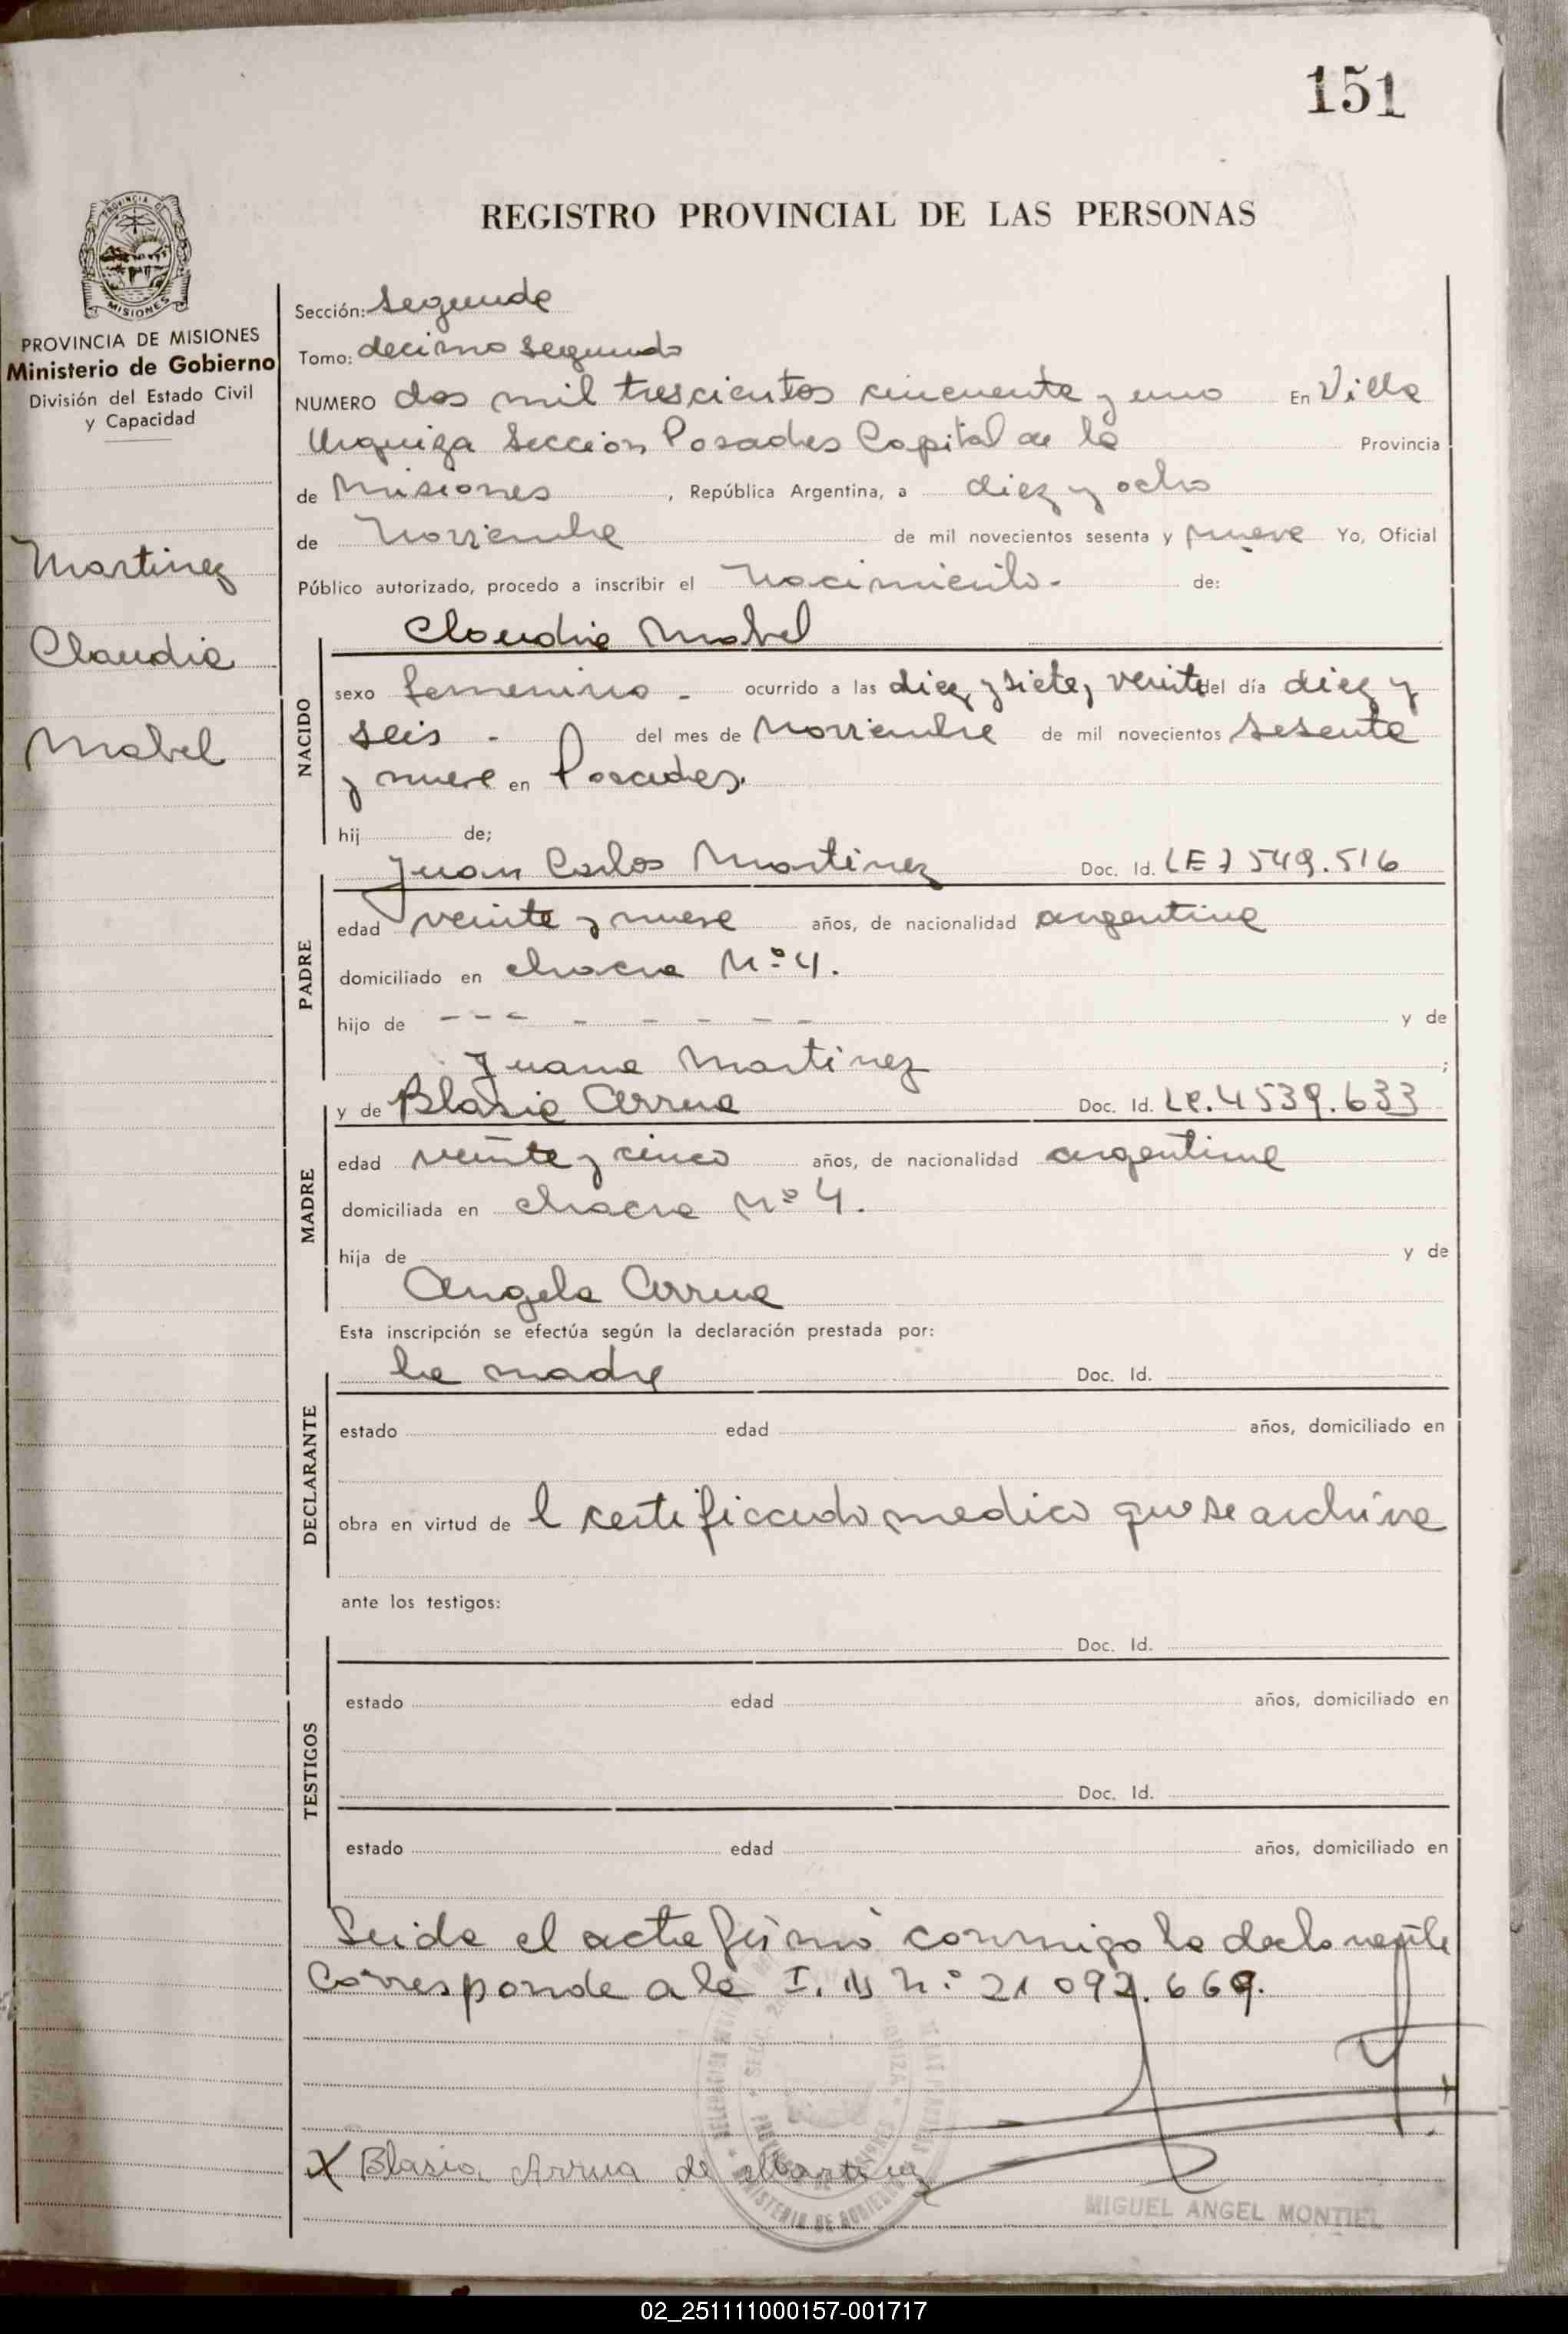 151
REGISTRO PROVINCIAL DE LAS PERSONAS
MISIONES
PROVINCIA DE MISIONES
Ministerio de Gobierno
División del Estado Civil
y Capacidad
Martinez
Claudia
Mabel
Sección: Segunda
Tomo: decimo segundo
NUMERO dos mil trescientos cincuenta y uno En Villa
Urquiza Sección Posadas Capital de la Provincia
de Misiones , República Argentina, a diez y ocho
de Noviembre de mil novecientos sesenta y nueve Yo, Oficial
Público autorizado, procedo a inscribir el Nacimiento - de:
Claudia Mabel
NACIDO
sexo femenino - ocurrido a las diez y siete y veinte del día diez y
seis - del mes de Noviembre de mil novecientos sesenta
y nueve en Posadas.
hij de;
Juan Carlos Martinez Doc. Id. LE 7549.516
PADRE
edad veinte y nueve años, de nacionalidad argentina
domiciliado en chacra Nº 4.
hijo de - - - - - - - - y de
Juana Martinez ;
y de Blasia Arrua Doc. Id. LC. 4539.633
MADRE
edad veinte y cinco años, de nacionalidad argentina
domiciliada en chacra Nº 4.
hija de y de
Angela Arrua
Esta inscripción se efectúa según la declaración prestada por:
la madre Doc. Id.
DECLARANTE
estado edad años, domiciliado en
obra en virtud de l certificado medico que se archiva
ante los testigos:
Doc. Id.
TESTIGOS
estado edad años, domiciliado en
Doc. Id.
estado edad años, domiciliado en
Leida el acta firmó conmigo la declarante
Corresponde a la I. N n.º 21 092.669.
X Blasia Arrua de Martinez
MIGUEL ANGEL MONTIEL
02_251111000157-001717